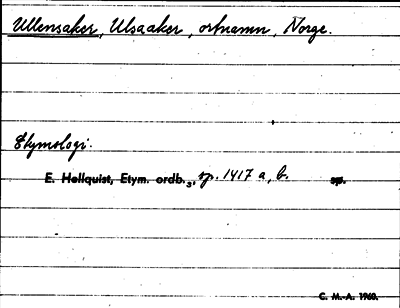 Ullensaker, Ulsaaker, ortnamn, Norge.
Etymologi.
E. Hellquist, Etym. ordb.3, sp. 1417 a, b. sp.
C. M.-A. 1960.